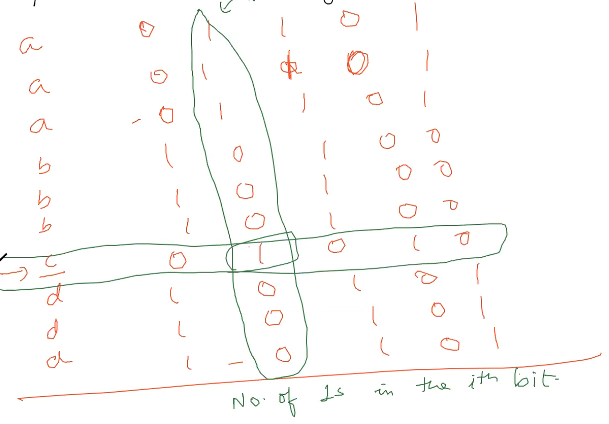 a 0 1 1 0 1
a 0 1 1 0 1
a - 0 1 1 0 1
b 1 0 1 0 0
b 1 0 1 0 0
b 1 0 1 0 0
→ c 0 1 0 1 0
d 1 0 1 0 1
d 1 0 1 0 1
d 1 - 0 1 0 1
No. of 1s in the ith bit.